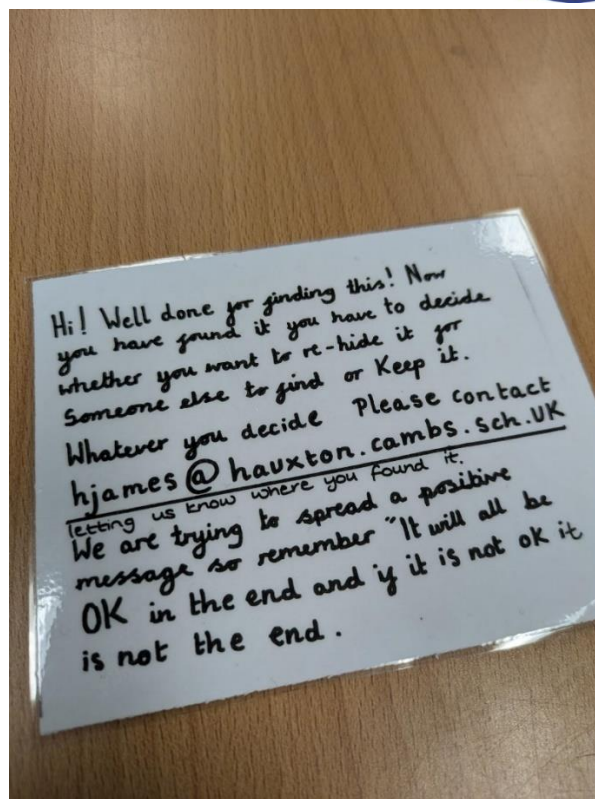 Hi! Well done for finding this! Now
you have found it you have to decide
whether you want to re-hide it for
someone else to find or Keep it.
Whatever you decide Please contact
hjames@hauxton.cambs.sch.UK
letting us know where you found it.
We are trying to spread a positive
message so remember "It will all be
OK in the end and if it is not ok it
is not the end.